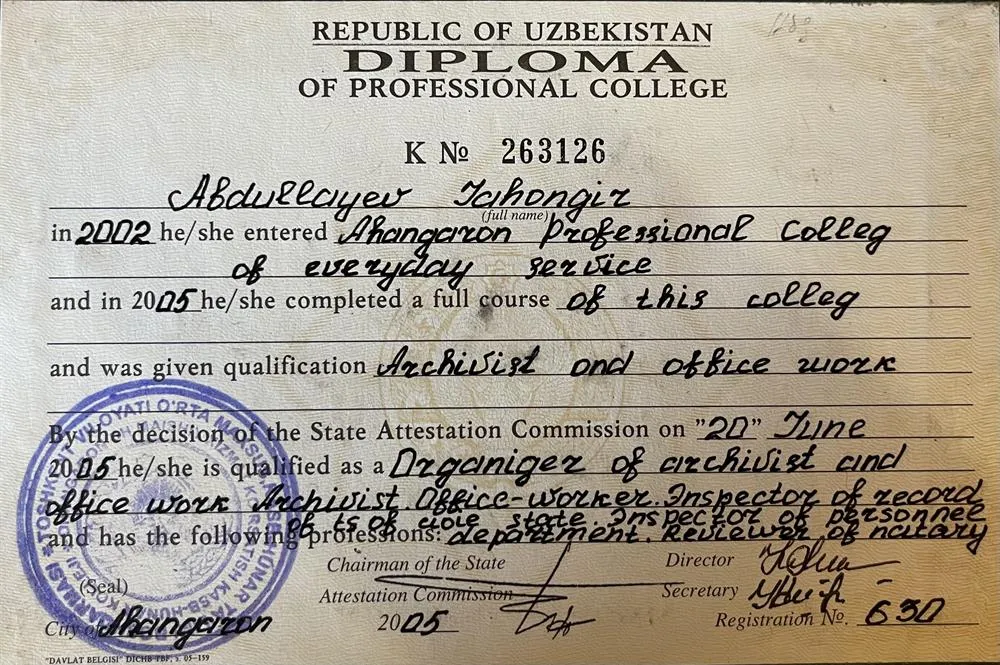 REPUBLIC OF UZBEKISTAN
DIPLOMA
OF PROFESSIONAL COLLEGE
K № 263126
Abdullayev Jahongir
(full name)
in 2002 he/she entered Ahangaron Professional colleg
of everyday service
and in 2005 he/she completed a full course of this colleg
and was given qualification Archivist and office work
By the decision of the State Attestation Commission on "20" June
2005 he/she is qualified as a Organizer of archivist and
office work Archivist. Office-worker. Inspector of record
of state. Inspector of personnee
and has the following professions: department. Reviewer of notary
Chairman of the State Director
(Seal) Attestation Commission Secretary
City of Ahangaron 2005 Registration №. 630
"DAVLAT BELGISI" DICHB TBF, z. 05-159
TOSHKENT VILOYATI O'RTA MAXSUS KASB-HUNAR